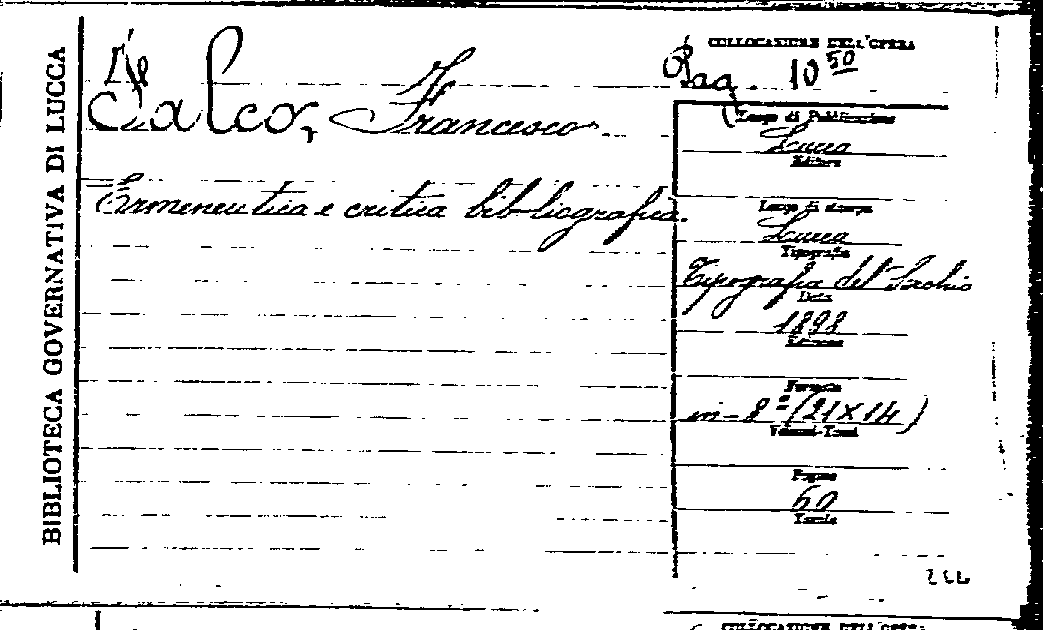 BIBLIOTECA GOVERNATIVA DI LUCCA
De
Calco, Francesco
Ermeneutica e critica bibliografica.
COLLOCAZIONE DELL'OPERA
Bag. 10 50
Luogo di Pubblicazione
Lucca
Editore
Luogo di stampa
Lucca
Tipografia
Tipografia del Serchio
Data
1898
Edizione
Formato
in-8º (21x14)
Volumi-Tomi
Pagine
60
Tavole
COLLOCAZIONE DELL'OPERA